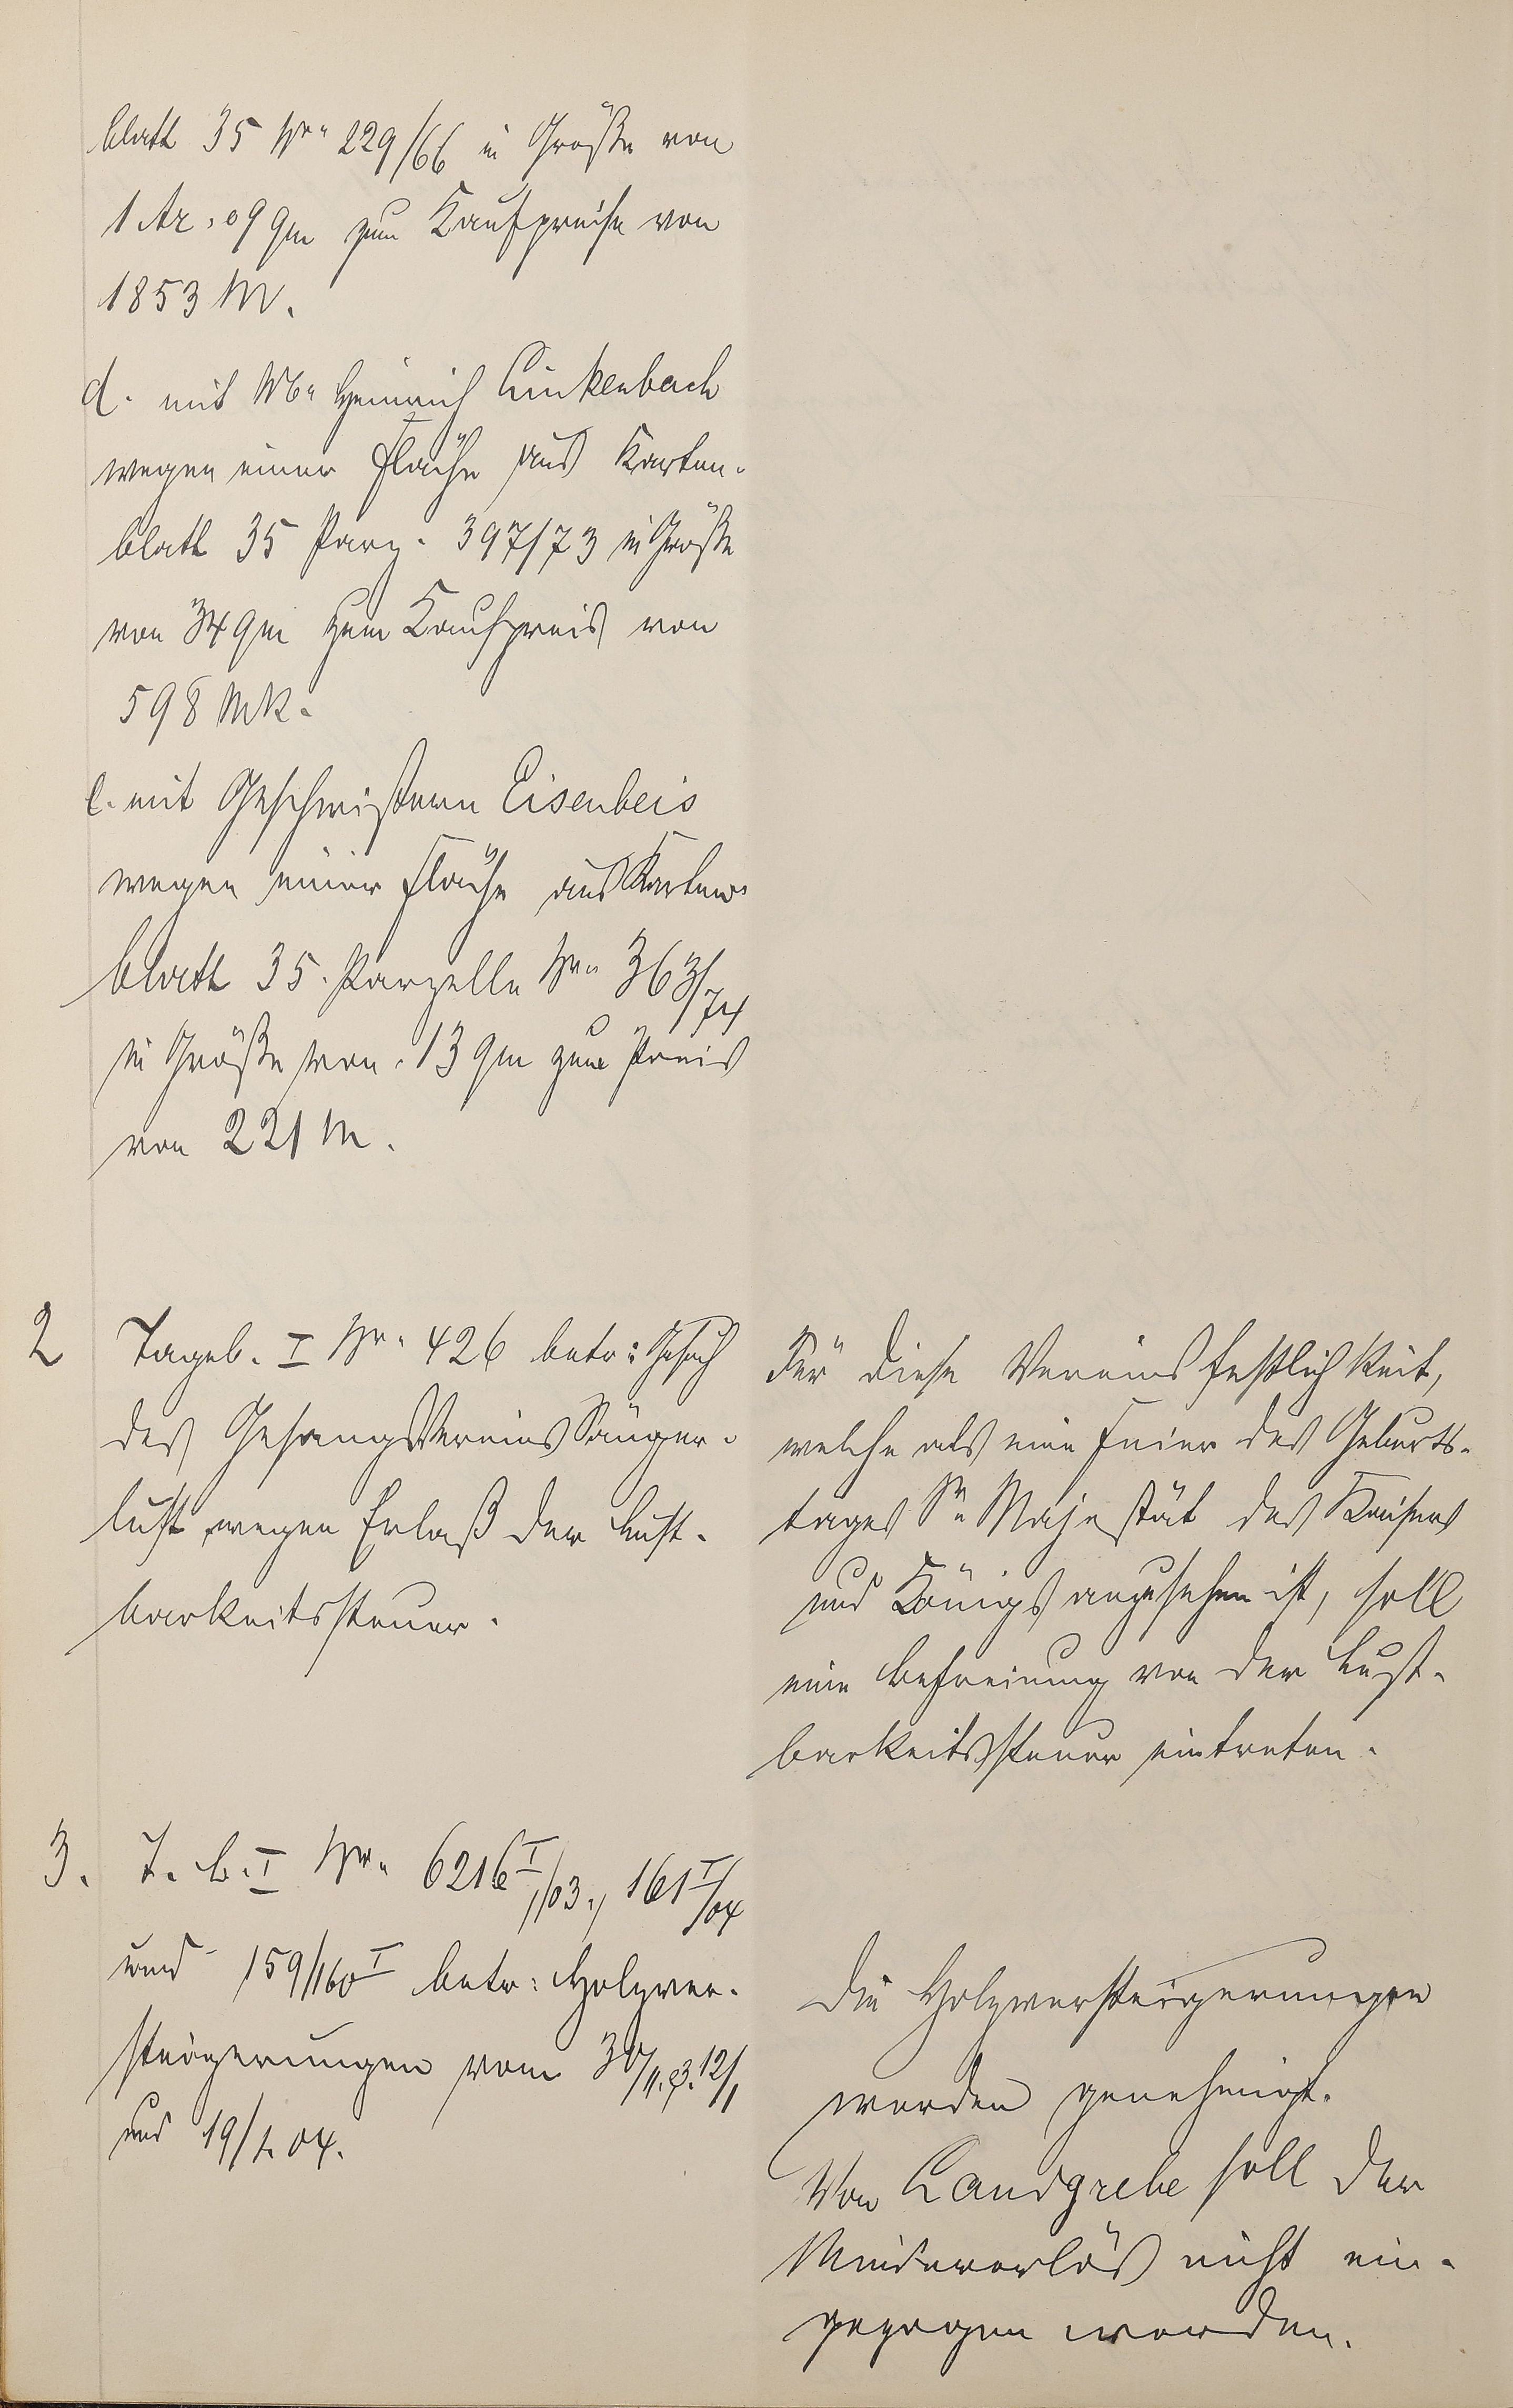 blatt 35 Nr. 229/66 in Größe von
1 Ar, 09 qm zum Kaufpreise von
1853 M.
d. mit Wb. Heinrich Linkenbach
wegen einer Fläche aus Karten-
blatt 35 Parz. 397/73 in Größe
von 34 qm zum Kaufpreis von
598 Mk.
e. mit Geschwistern Eisenbeis
wegen einer Fläche aus Karten-
blatt 35. Parzelle Nr. 363/74
in Größe von 13 qm zum Preis
von 221 M.
2 Tageb. I Nr. 426 betr: Gesuch
des Gesangvereins Sänger-
lust wegen Erlaß der Lust-
barkeitssteuer.
Für diese Vereinsfestlichkeit,
welche als eine Feier des Geburts-
tages Sr. Majestät des Kaisers
und Königs anzusehen ist, soll
eine Befreiung von der Lust-
barkeitssteuer eintreten.
3. T. b. I Nr. 6216 I/03, 161 I/04
und 159/160 I betr: Holzver-
steigerungen vom 30/11.03. 12/1
und 19/1. 04.
Die Holzversteigerungen
werden genehmigt.
Von Landgrebe soll der
Mindererlös nicht ein-
gezogen werden.